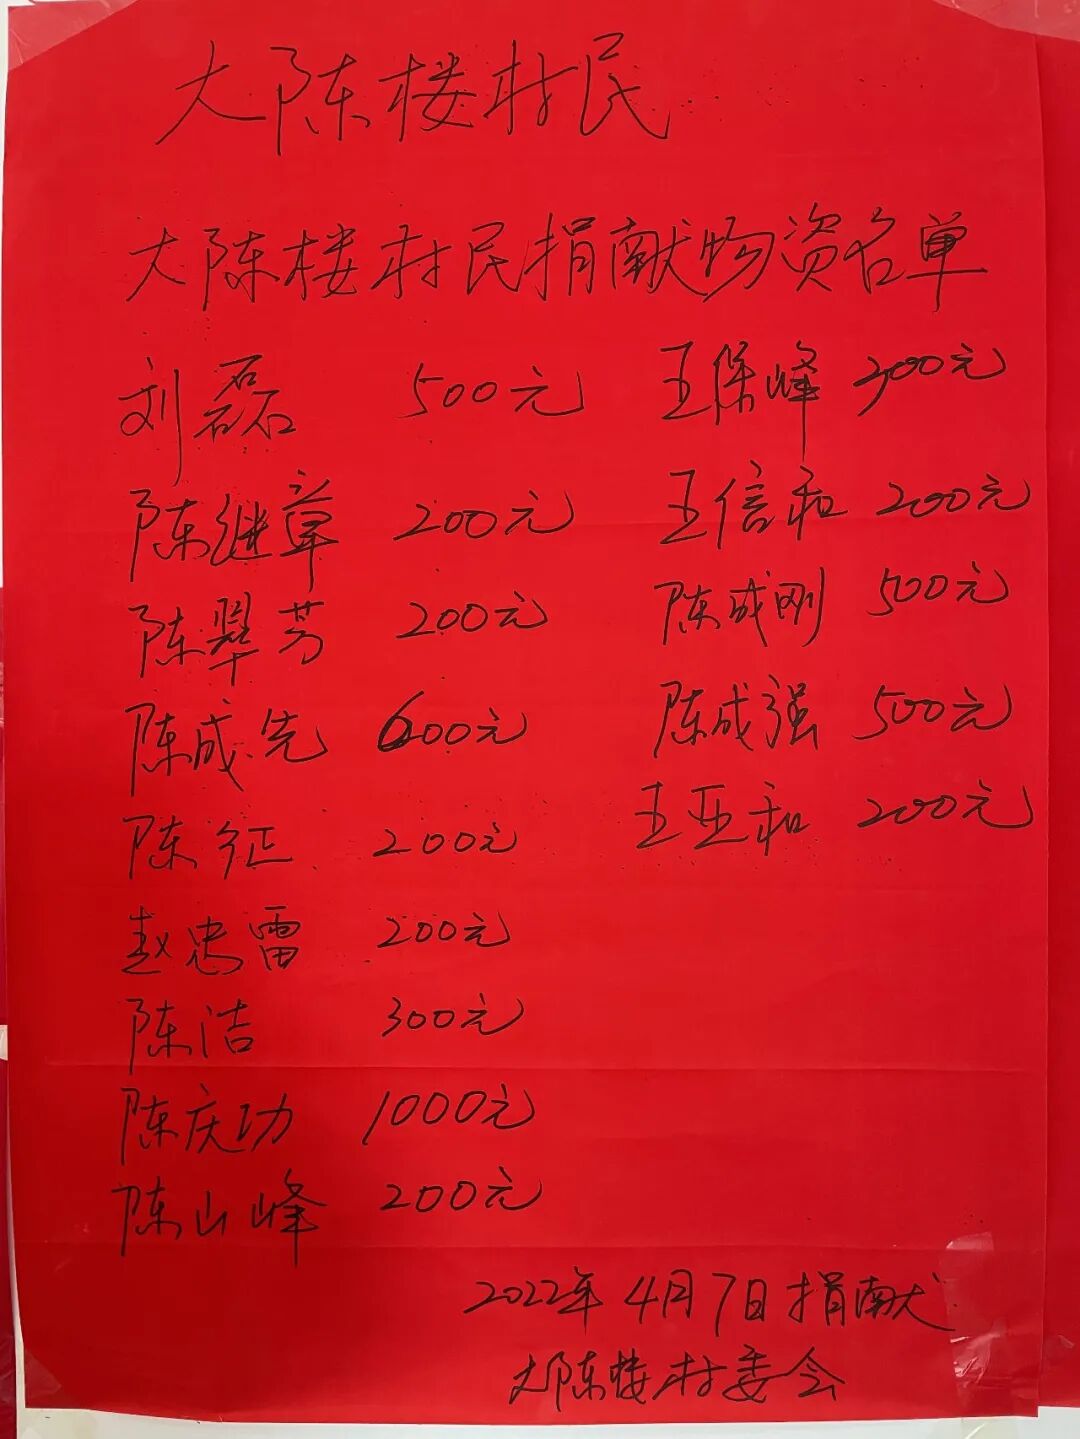 大陈楼村民
大陈楼村民捐献物资名单
刘磊 500元
陈继章 200元
陈翠芳 200元
陈成先 600元
陈征 200元
赵忠雷 200元
陈洁 300元
陈庆功 1000元
陈山峰 200元
王保峰 200元
王信和 200元
陈成刚 500元
陈成强 500元
王亚和 200元
2022年4月7日捐献
大陈楼村委会